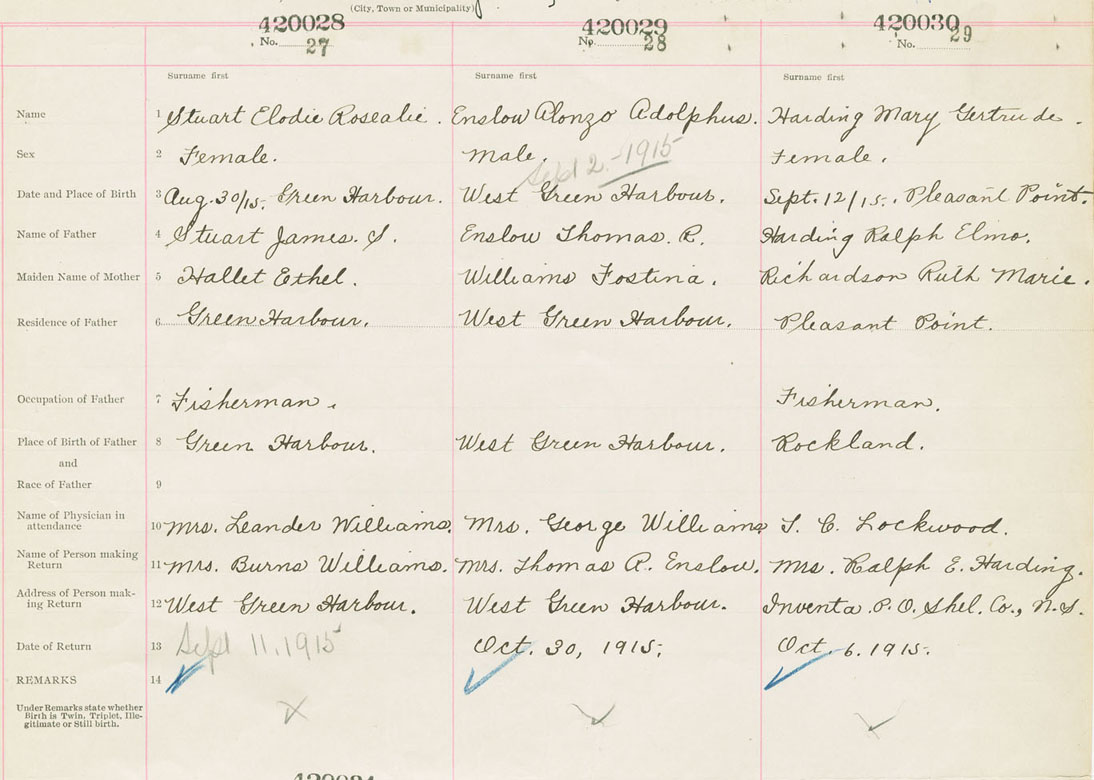 (City, Town or Municipality)
420028 420029 420030
No. 27 No. 28 No. 29
Surname first Surname first Surname first
Name 1 Stuart Elodie Rosealie. Enslow Alonzo Adolphus. Harding Mary Gertrude.
Sex 2 Female. Male. Female.
Sept 2 - 1915
Date and Place of Birth 3 Aug. 30/15. Green Harbour. West Green Harbour. Sept. 12/15. Pleasant Point.
Name of Father 4 Stuart James. S. Enslow Thomas. R. Harding Ralph Elmo.
Maiden Name of Mother 5 Hallet Ethel. Williams Fostina. Richardson Ruth Marie.
Residence of Father 6 Green Harbour. West Green Harbour. Pleasant Point.
Occupation of Father 7 Fisherman. Fisherman.
Place of Birth of Father 8 Green Harbour. West Green Harbour. Rockland.
and
Race of Father 9
Name of Physician in
attendance 10 Mrs. Leander Williams. Mrs. George Williams S. C. Lockwood.
Name of Person making
Return 11 Mrs. Burns Williams. Mrs. Thomas R. Enslow. Mrs. Ralph E. Harding.
Address of Person mak-
ing Return 12 West Green Harbour. West Green Harbour. Inventa. P.O. Shel. Co., N.S.
Date of Return 13 Sept 11. 1915 Oct. 30, 1915. Oct. 6. 1915.
REMARKS 14
Under Remarks state whether
Birth is Twin, Triplet, Ille-
gitimate or Still birth.